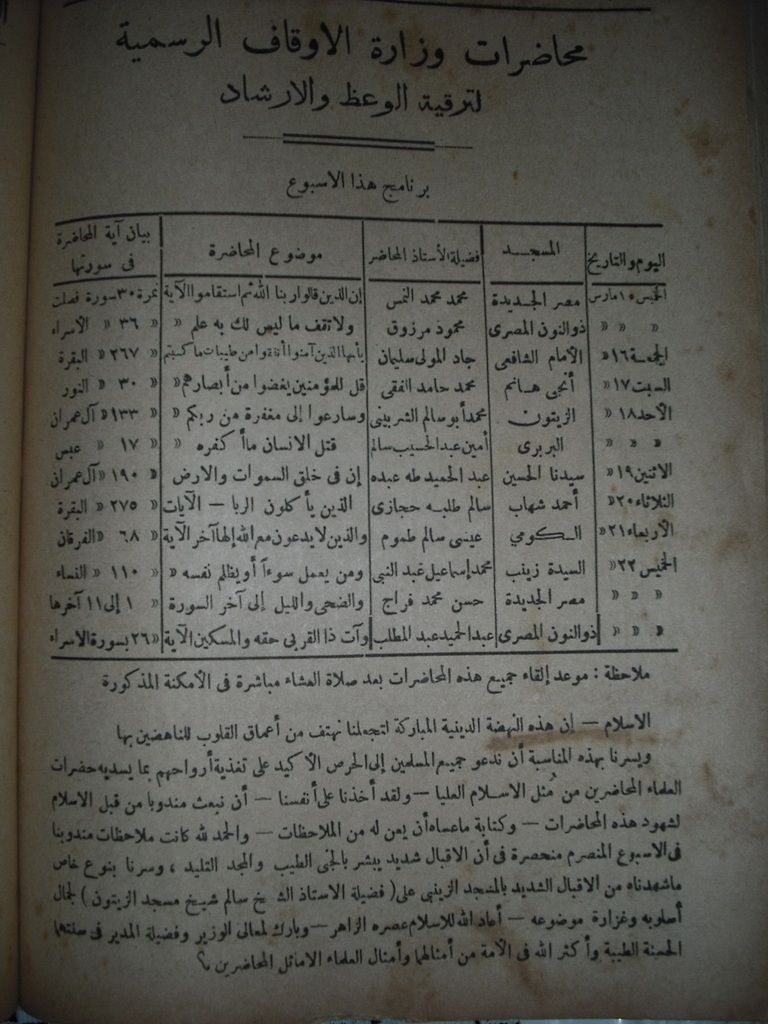 محاضرات وزارة الاوقاف الرسمية
لترقية الوعظ والارشاد
برنامج هذا الاسبوع
اليوم والتاريخ المسجد فضيلة الأستاذ المحاضر موضوع المحاضرة بيان آية المحاضرة فى سورتها
الخميس ١٥ مارس مصر الجديدة محمد محمد النمس إن الذين قالوا ربنا الله ثم استقاموا الآية نمرة ٣٠ سورة فصلت
» » » ذوالنون المصرى محمود مرزوق ولا تقف ما ليس لك به علم » » ٣٦ » الأسراء
الجمعة ١٦ » الأمام الشافعى جاد المولى سليمان يأيها الذين آمنوا أنفقوا من طيبات ما كسبتم » ٢٦٧ » البقرة
السبت ١٧ » أنجى هانم محمد حامد الفقى قل للمؤمنين يغضوا من أبصارهم » » ٣٠ » النور
الأحد ١٨ » الزيتون محمد أبو سالم الشربينى وسارعوا إلى مغفرة من ربكم » » ١٣٣ » آل عمران
» » » البربرى أمين عبد الحسيب سالم قتل الانسان ما أكفره » » ١٧ » عبس
الاثنين ١٩ » سيدنا الحسين عبد الحميد طه عبده إن فى خلق السموات والارض » ١٩٠ » آل عمران
الثلاثاء ٢٠ » أحمد شهاب سالم طلبه حجازى الذين يأكلون الربا — الآيات » ٢٧٥ » البقرة
الأربعاء ٢١ » الكومي عيسى سالم طموم والذين لا يدعون مع الله إلها آخر الآية » ٦٨ » الفرقان
الخميس ٢٢ » السيدة زينب محمد إسماعيل عبد النبى ومن يعمل سوءاً أو يظلم نفسه » » ١١٠ » النساء
» » » مصر الجديدة حسن محمد فراج والضحى والليل إلى آخر السورة » ١ إلى ١١ آخرها
» » » ذوالنون المصرى عبد الحميد عبد المطلب وآت ذا القربى حقه والمسكين الآية » ٢٦ بسورة الاسراء
ملاحظة : موعد إلقاء جميع هذه المحاضرات بعد صلاة العشاء مباشرة فى الأمكنة المذكورة
الاسلام — إن هذه النهضة الدينية المباركة لتجعلنا نهتف من أعماق القلوب للناهضين بها
ويسرنا بهذه المناسبة أن ندعو جميع المسلمين إلى الحرص الأكيد على تغذية أرواحهم بما يسديه حضرات
العلماء المحاضرين من مُثل الاسلام العليا — ولقد أخذنا على أنفسنا — أن نبعث مندوبا من قبل الاسلام
لشهود هذه المحاضرات — وكتابة ما عساه أن يعن له من الملاحظات — والحمد لله كانت ملاحظات مندوبنا
فى الاسبوع المنصرم منحصرة فى أن الاقبال شديد يبشر بالجنى الطيب والمجد التليد ، وسرنا بنوع خاص
ما شهدناه من الاقبال الشديد بالمسجد الزينبى على ( فضيلة الاستاذ الشيخ سالم شيخ مسجد الزيتون ) لجمال
أسلوبه وغزارة موضوعه — أعاد الله للاسلام عصره الزاهر — وبارك لمعالى الوزير وفضيلة المدير فى سنتهما
الحسنة الطيبة وأكثر الله فى الأمة من أمثالهما وأمثال العلماء الاماثل المحاضرين